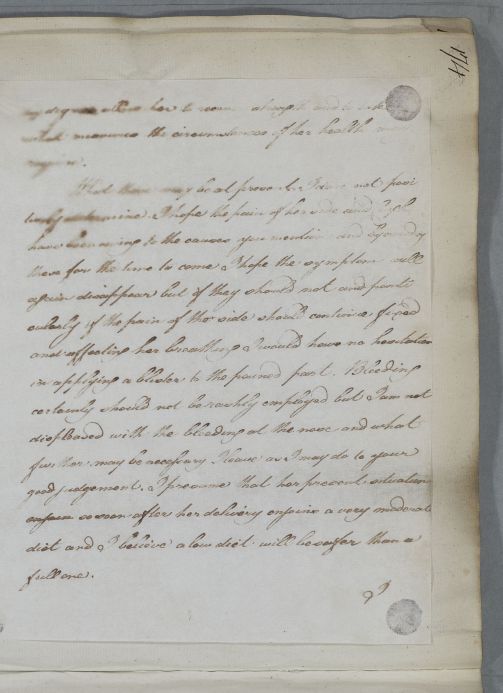 degree allow her to recover strength and to take
what measures the circumstances of her health may
require.
What these may be at present I dare not posi
tively determine. I hope the pain of her side and Cough
have been owing to the causes you mention and by avoiding
these for the time to come I hope the symptoms will
again disappear but if they should not and parti
cularly if the pain of the side should continue fixed
and affecting her breathing I would have no hesitation
in applying a blister to the pained part. Bleeding
certainly should not be rashly employed but I am not
displeased with the bleeding at the nose and what
further may be necessary I leave as I may do to your
good judgement. I presume that her present situation
so soon after her delivery enjoins a very moderate
diet and I believe a low diet will be safer than a
full one.